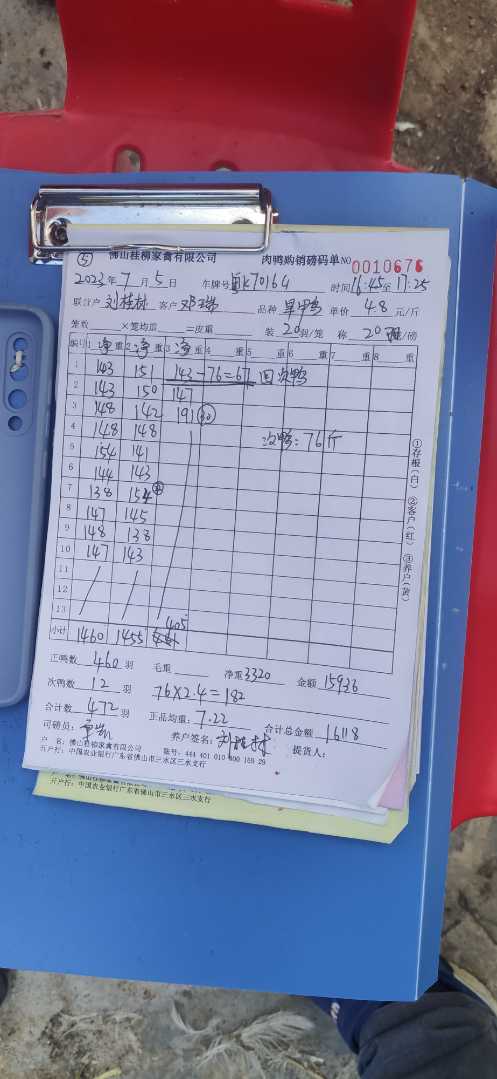 ⑤ 佛山桂柳家禽有限公司 肉鸭购销磅码单 NO 0010676
2023年7月5日 车牌号 K70164 时间16:45至17:25
联注户 刘桂林 客户 邓瑞 品种 旱甲鸭 单价 4.8 元/斤
笼数 ×笼均重 =皮重 装 20羽/笼 称 20 /磅
编号 1 净 重 2 净 重 3 净 重 4 重 5 重 6 重 7 重 8 重
1 143 151 143-76=67 回次鸭
2 143 150 147
3 148 142 191 ㉚
4 148 148
次鸭:76斤
5 154 141
6 144 143
7 138 154
8 147 145
9 148 138
10 147 143
11
12
13
小计 1460 1455 405
正鸭数 460 羽 毛重 净重 3320 金额 15936
次鸭数 12 羽 76×2.4=182
合计数 472 羽 正品均重: 7.22 合计总金额 16118
司磅员: 养户签名: 刘桂林 提货人:
户 名:佛山桂柳家禽有限公司 账号: 444 401 010 400 169 29
开户行:中国农业银行广东省佛山市三水区三水支行
①存根(白) ②客户(红) ③养户(黄)
开户行:中国农业银行广东省佛山市三水区三水支行